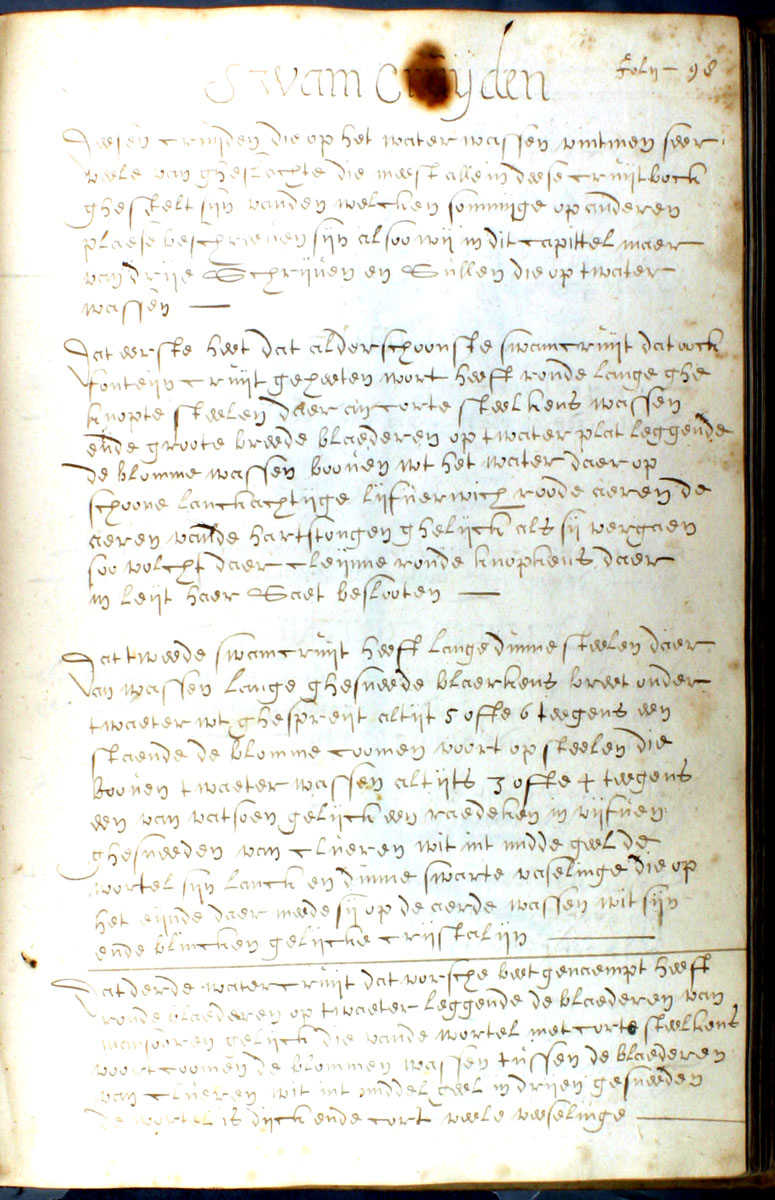 Folij - 98
Swam Cruijden
Deesen cruijden die op het water wassen vintmen seer
veele van gheslachte die meest alle in deese cruijtbock
ghestelt sijn vanden welcken sommige op anderen
plaese beschreeven sijn alsoo wij in dit capittel maer
van drije Schrijven en Sullen die op twater
wassen —
Dat eerste heet dat alderschoonste swamcruijt dat oock
fonteijn cruijt geheeten wort heeft ronde lange ghe
knopte steelen daer an corte steelkens wassen
ende groote breede blaederen op twater plat leggende
de blomme wassen booven wt het water daer op
schoone lanckachtijge lijfverwich roode aeren de
aeren vande hartstongen ghelijck als sij vergaen
soo volcht daer cleijnne ronde knopkens daer
in leijt haer Saet beslooten —
Dat tweede swamcruijt heeft lange dunne steelen daer
an wassen lange ghesneede blaerkens breet onder
twaeter wt ghespreijt altijt 5 ofte 6 teegens een
staende de blomme coomen voort op steelen die
booven twaeter wassen altijts 3 ofte 4 teegens
een van vatsoen gelijck een raedeken in vijfven
ghesneeden van clueren wit int midde geel de
wortel sijn lanck en dunne swarte vaselinge die op
het eijnde daer meede sij op de aerde wassen wit sijn
ende blincken gelijcke crijstalijn —
Dat derde watercruijt dat vorsche beet genaempt heeft
ronde blaederen op twaeter leggende de blaederen van
mansooren gelijck die vande wortel met corte steelkens
voortcoomen de blommen wassen tussen de blaederen
van clueren wit int middel geel in drijen gesneeden
de wortel is dijck ende cort veele veeselinge —